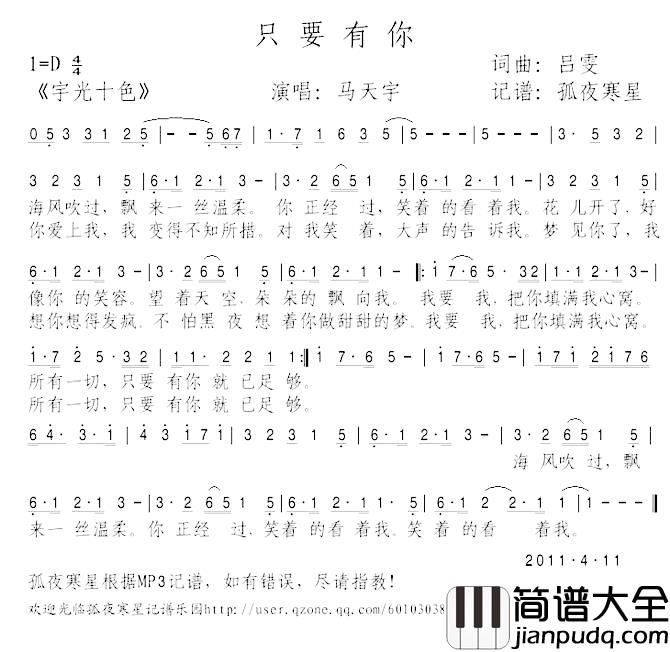 只要有你
1=D 4/4 词曲：吕雯
《宇光十色》 演唱：马天宇 记谱：孤夜寒星
0 5 3 3 1 2 5 | - - 5 6 7 | 1 · 7 1 6 3 5 | 5 - - - | 3 · 5 3 2
3 2 3 1 5 | 6 · 1 2 · 1 3 - | 3 · 2 6 5 1 5 | 6 · 1 2 · 1 1 - | 3 2 3 1 5
海风吹过，飘 来一 丝温柔。 你 正经 过，笑着 的看着我。花 儿开了，好
你爱上我，我 变得不知所措。对 我笑 着，大声的告 诉我。梦 见你了，我
6 · 1 2 · 1 3 - | 3 · 2 6 5 1 5 | 6 · 1 2 · 1 1 - |: 1 7 6 5 · 3 2 | 1 2 3 1 2 5
像你 的笑容。望 着天 空，朵 朵的 飘 向我。 我要 我，把你填满我心窝。
想你想得发疯。不 怕黑 夜 想 着你做甜甜的梦。我要 我，把你填满我心窝。
1 · 7 2 5 · 3 2 | 1 1 · 2 2 · 2 1 :| 1 · 7 6 · 5 | 1 · 7 6 · 5 | 1 7 1 2 1 7 6
所有一切，只要 有你 就 已足 够。
所有一切，只要 有你 就 已足 够。
6 4 · 3 · 1 | 4 3 1 7 1 | 3 2 3 1 5 | 6 · 1 2 · 1 3 - | 3 · 2 6 5 1 5
海 风吹 过，飘
6 · 1 2 · 1 3 - | 3 · 2 6 5 1 5 | 6 · 1 2 · 1 1 5 | 6 · 1 2 - 2 · 1 | 1 - - - ‖
来一 丝温柔。你 正经 过，笑着 的看 着我。笑 着 的看 着我。
2011·4·11
孤夜寒星根据MP3记谱，如有错误，尽请指教！
欢迎光临孤夜寒星记谱乐园http://user.qzone.qq.com/60103038
简谱大全
jianpudq.com